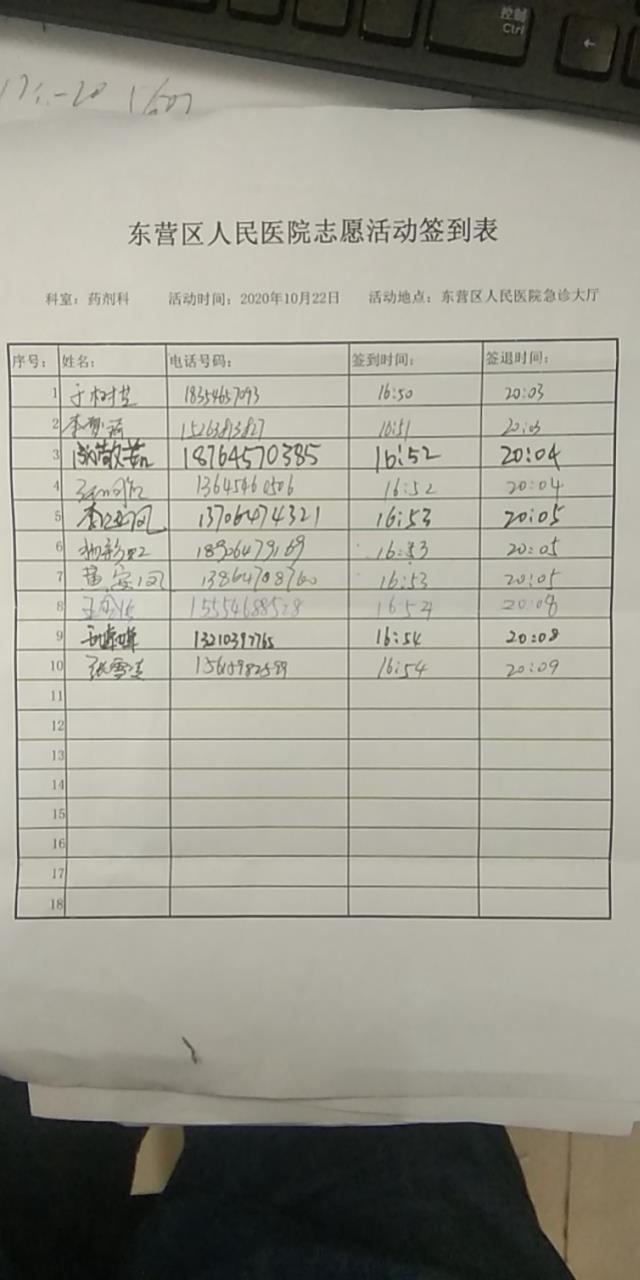 控制
Ctrl
←
东营区人民医院志愿活动签到表
科室：药剂科 活动时间：2020年10月22日 活动地点：东营区人民医院急诊大厅
序号： 姓名： 电话号码： 签到时间： 签退时间：
1 18354657093 16:50 20:03
2 15263893827 16:51 20:03
3 18764570385 16:52 20:04
4 13645460506 16:52 20:04
5 13706474321 16:53 20:05
6 18926479169 16:53 20:05
7 黄安凤 13864708760 16:53 20:05
8 15554688528 16:54 20:08
9 13210397765 16:54 20:08
10 张雪莲 16:54 20:09
11
12
13
14
15
16
17
18